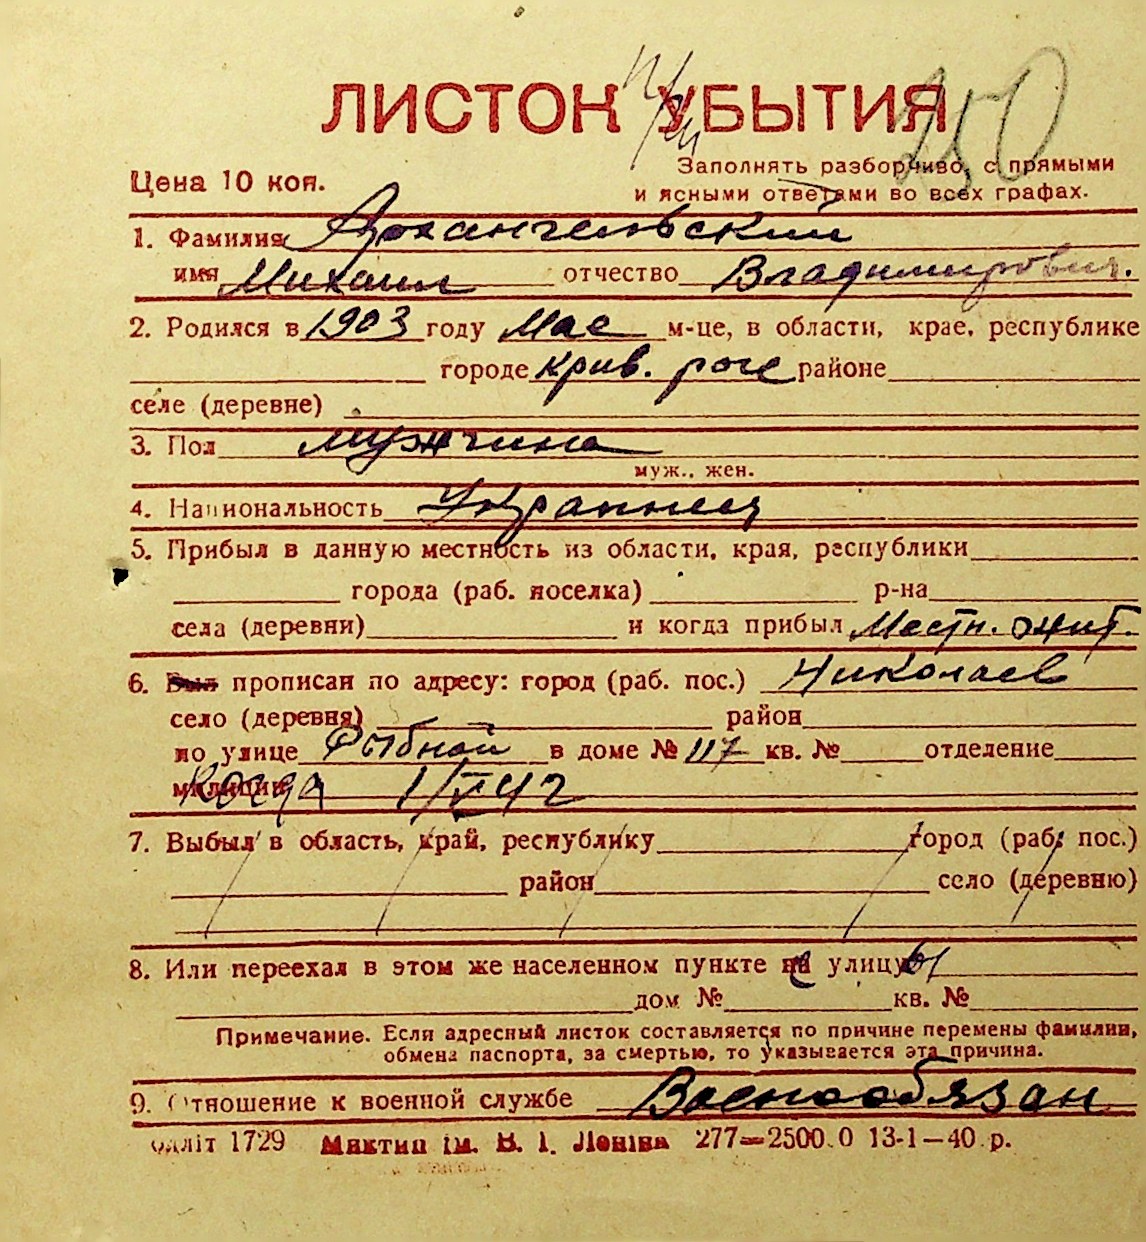 ЛИСТОК УБЫТИЯ
250
Цена 10 коп.
Заполнять разборчиво, с прямыми
и ясными ответами во всех графах.
1. Фамилия Архангельский
имя Михаил отчество Владимирович.
2. Родился в 1903 году Мае м-це, в области, крае, республике
городе Крив. роге районе
селе (деревне)
3. Пол мужчина
муж., жен.
4. Национальность Украинец
5. Прибыл в данную местность из области, края, республики
города (раб. поселка) р-на
села (деревни) и когда прибыл Местн. жит.
6. Был прописан по адресу: город (раб. пос.) Николаев
село (деревня) район
по улице Рыбной в доме № 117 кв. № отделение
милиции Когда 1/V 42
7. Выбыл в область, край, республику город (раб. пос.)
район село (деревню)
8. Или переехал в этом же населенном пункте с улицы
дом № кв. №
Примечание. Если адресный листок составляется по причине перемены фамилии,
обмена паспорта, за смертью, то указывается эта причина.
9. Отношение к военной службе Военнообязан
одліт 1729 Миктип ім. В. І. Леніна 277—2500.0 13-1—40 р.